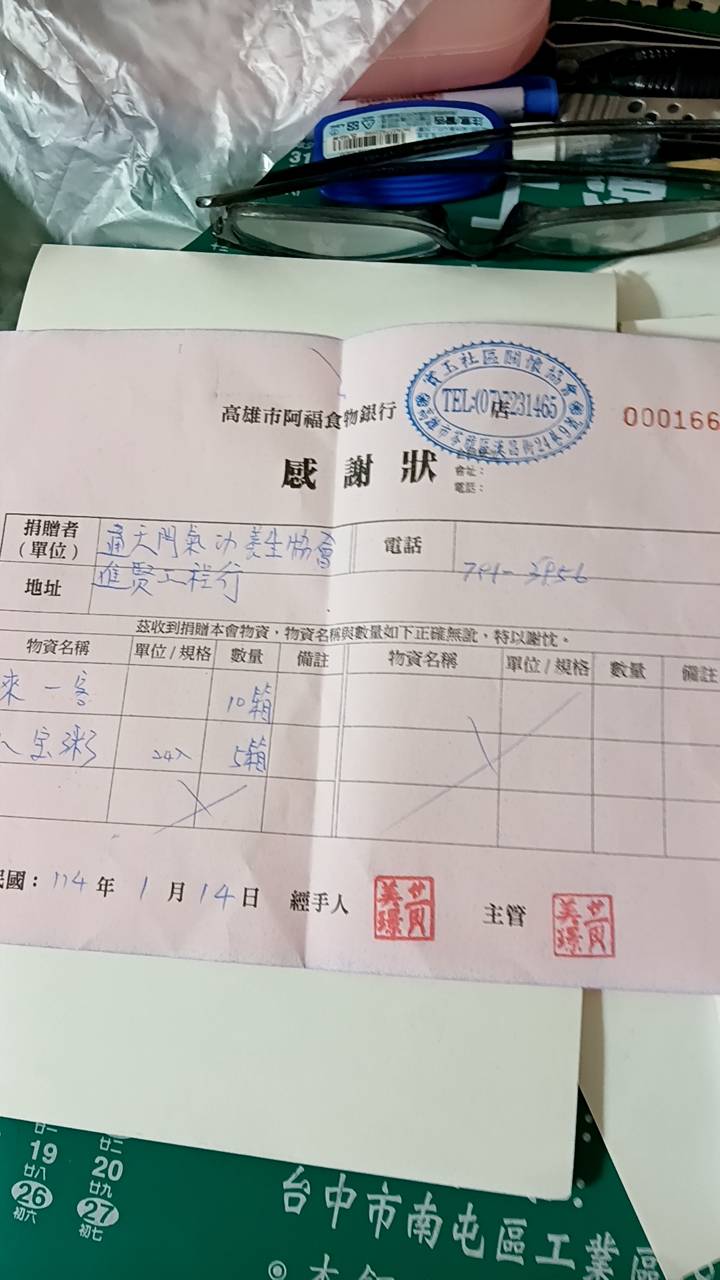 31
注意警告
高雄市阿福食物銀行
店
TEL:(07)7231465
社區關懷協會
000166
感謝狀
會址：
電話：
捐贈者
(單位)
通天門氣功養生協會
電話
地址
進賢工程行
791-3956
茲收到捐贈本會物資，物資名稱與數量如下正確無訛，特以謝忱。
物資名稱 單位/規格 數量 備註 物資名稱 單位/規格 數量 備註
來一客 10箱
八宝粥 24入 5箱
民國：114年1月14日 經手人 主管
廿二
19 20
廿八 廿九
26 27
初六 初七
台中市南屯區工業區